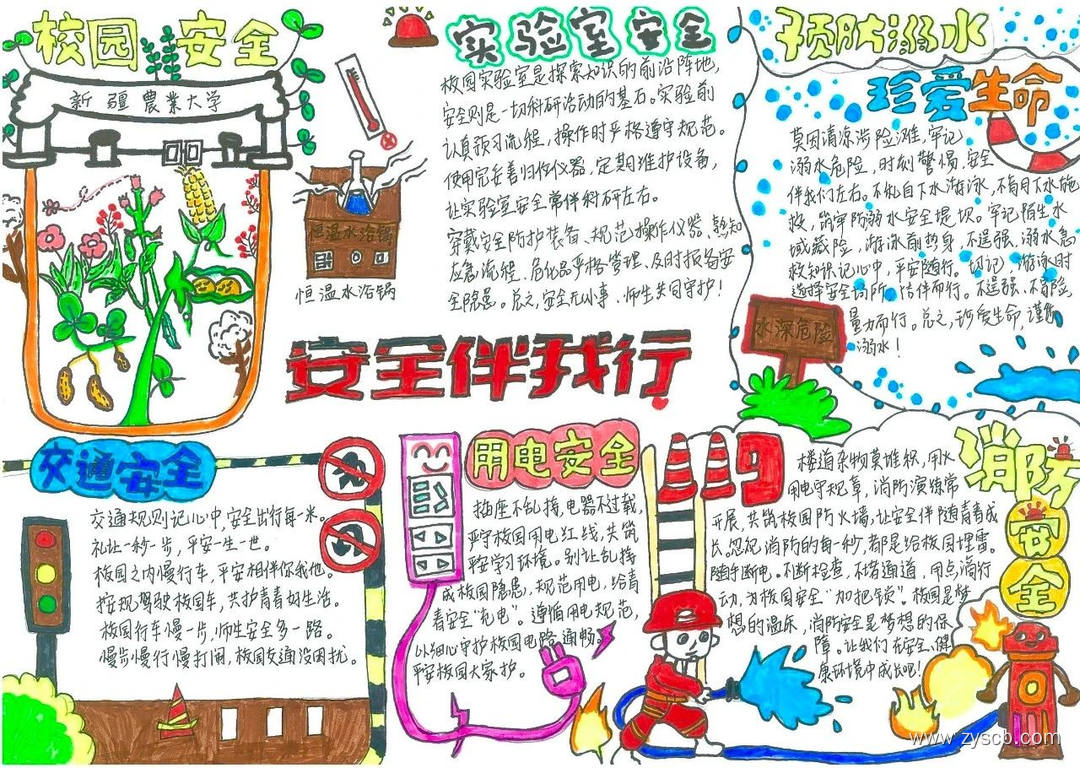 校园安全
新疆農業大学
恒温水浴锅
恒温水浴锅
实验室安全
校园实验室是探索知识的前沿阵地,
安全则是一切科研活动的基石。实验前
认真预习流程,操作时严格遵守规范。
使用完妥善归位仪器,定期维护设备,
让实验室安全常伴科研左右。
穿戴安全防护装备、规范操作仪器、熟知
应急流程、危化品严格管理、及时报备安
全隐患。总之,安全无小事、师生共同守护!
预防溺水
珍爱生命
莫因清凉涉险滩,牢记
溺水危险,时刻警惕,安全
伴我们左右。不私自下水游泳,不盲目下水施
救,筑牢防溺水安全堤坝。牢记陌生水
域藏险,游泳前热身,不逞强,溺水急
救知识记心中,平安随行。切记,游泳时
选择安全场所,结伴而行。不逞强、不冒险,
量力而行。总之,珍爱生命,谨防
溺水!
水深危险
安全伴我行
交通安全
交通规则记心中,安全出行每一米。
礼让一秒一步,平安一生一世。
校园之内慢行车,平安相伴你我他。
按规驾驶校园车,共护青春好生活。
校园行车慢一步,师生安全多一路。
慢步慢行慢打闹,校园交通没困扰。
用电安全
插座不乱接,电器不过载,
严守校园用电红线,共筑
平安学习环境。别让乱接
成校园隐患,规范用电,给青
春安全“充电”。遵循用电规范,
以细心守护校园电路通畅。
平安校园大家护。
119
消防
安
全
楼道杂物莫堆积,用火
用电守规章,消防演练常
开展,共筑校园防火墙,让安全伴随青春成
长。忽视消防的每一秒,都是给校园埋雷。
随手断电。不断检查,不堵通道,用点滴行
动,为校园安全“加把锁”。校园是梦
想的温床,消防安全是梦想的保
障。让我们在安全、健
康环境中成长吧!
www.zyscb.com